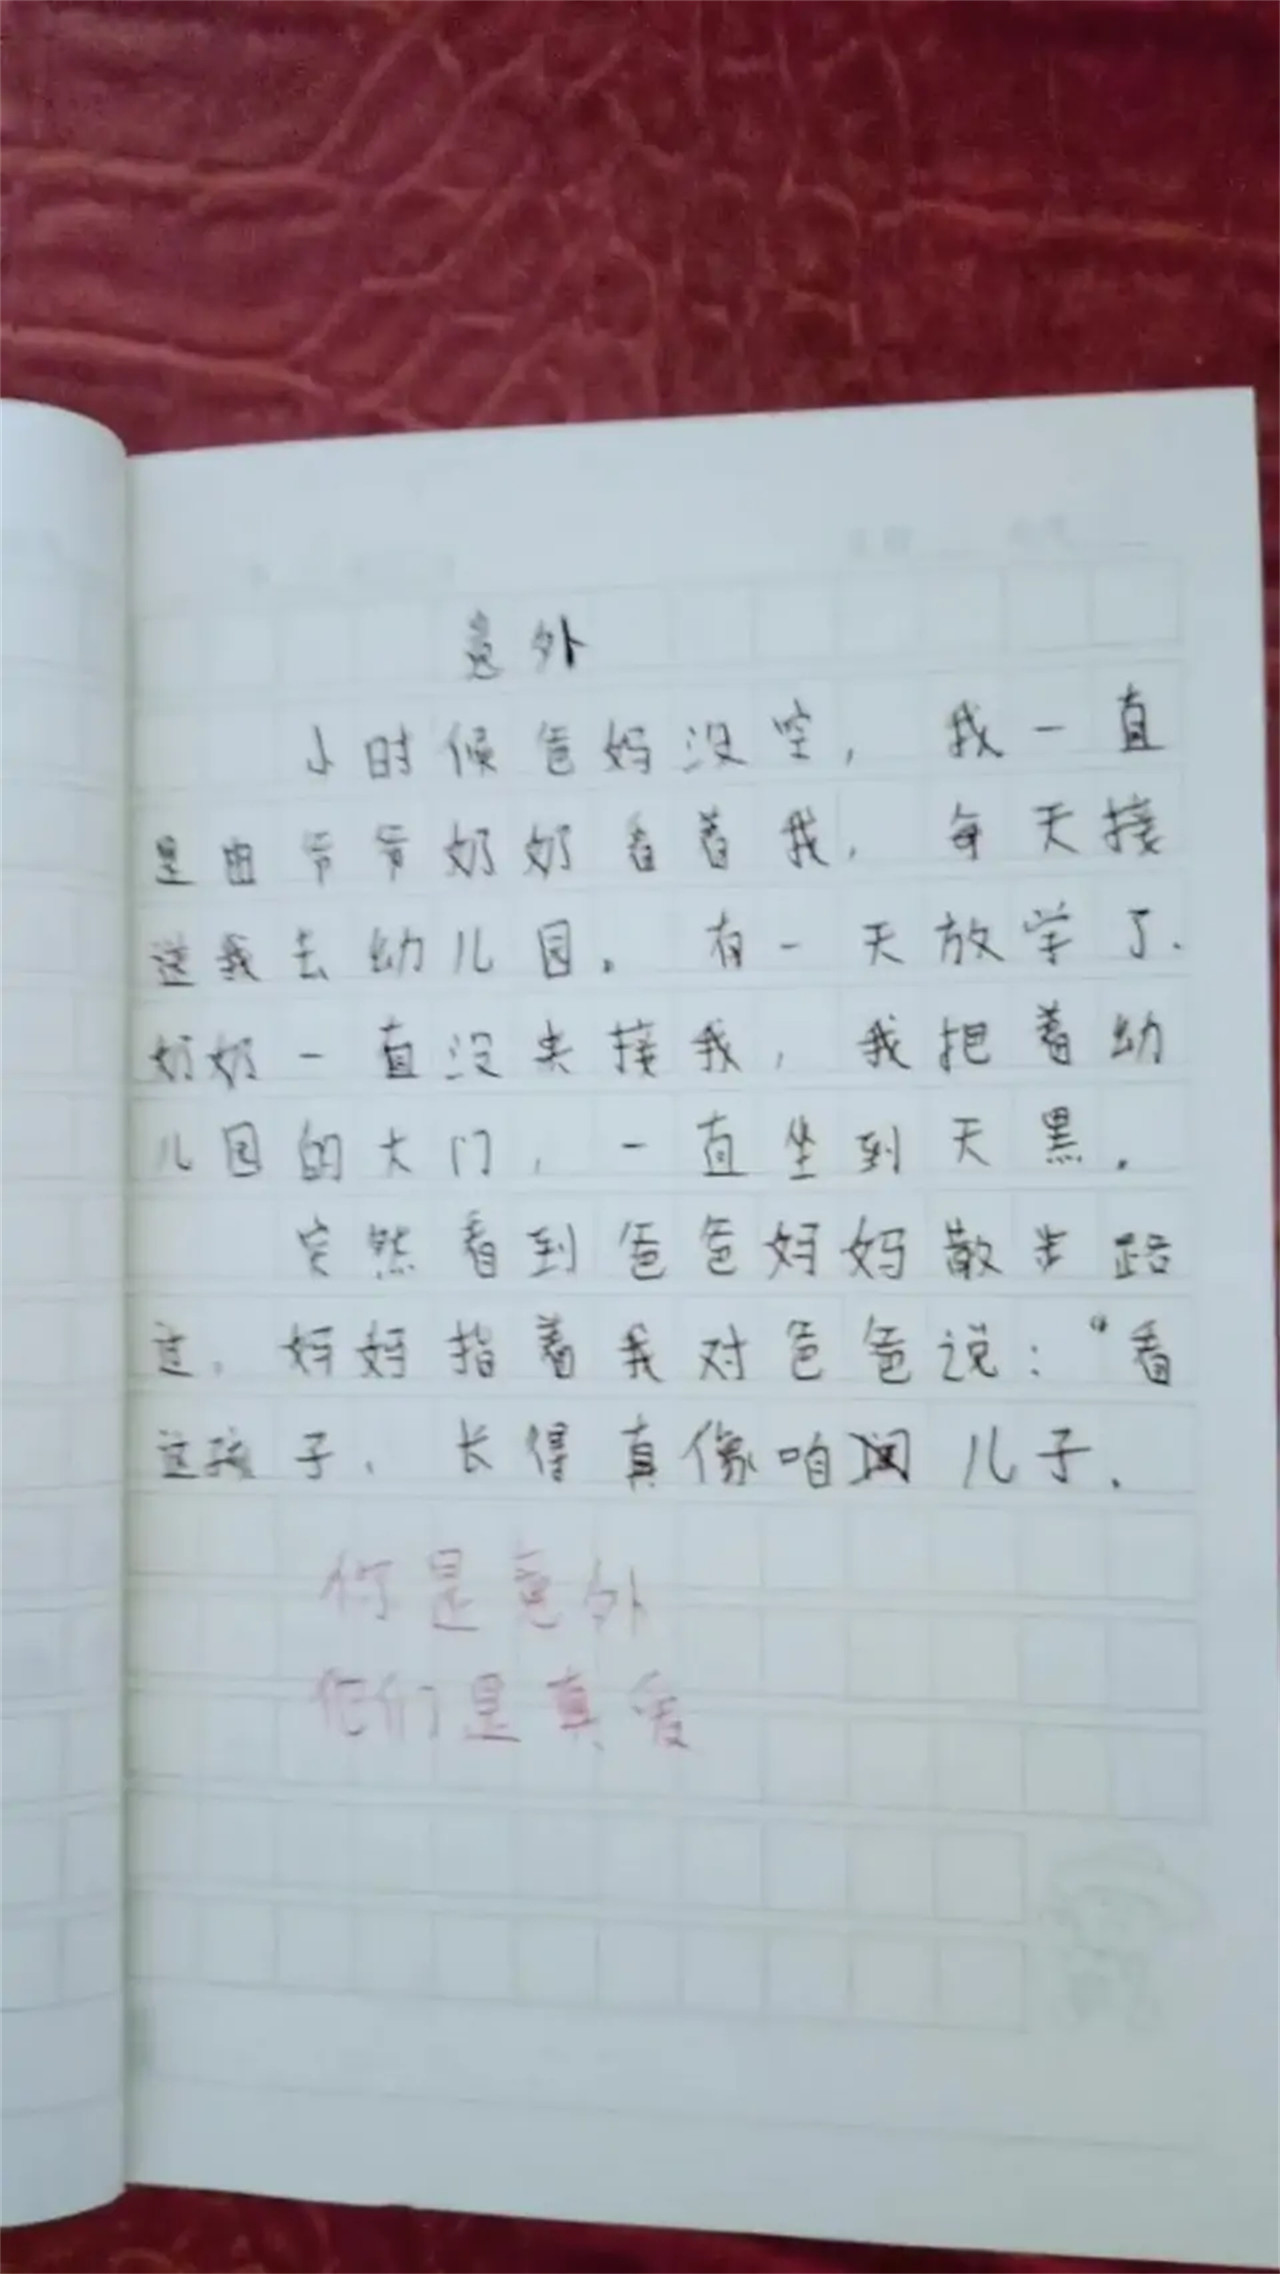 意外
小时候爸妈没空,我一直
是由爷爷奶奶看着我,每天接
送我去幼儿园。有一天放学了.
奶奶一直没来接我,我把着幼
儿园的大门,一直坐到天黑.
突然看到爸爸妈妈散步路
过.妈妈指着我对爸爸说:“看
这孩子,长得真像咱 儿子.
你是意外
他们是真爱